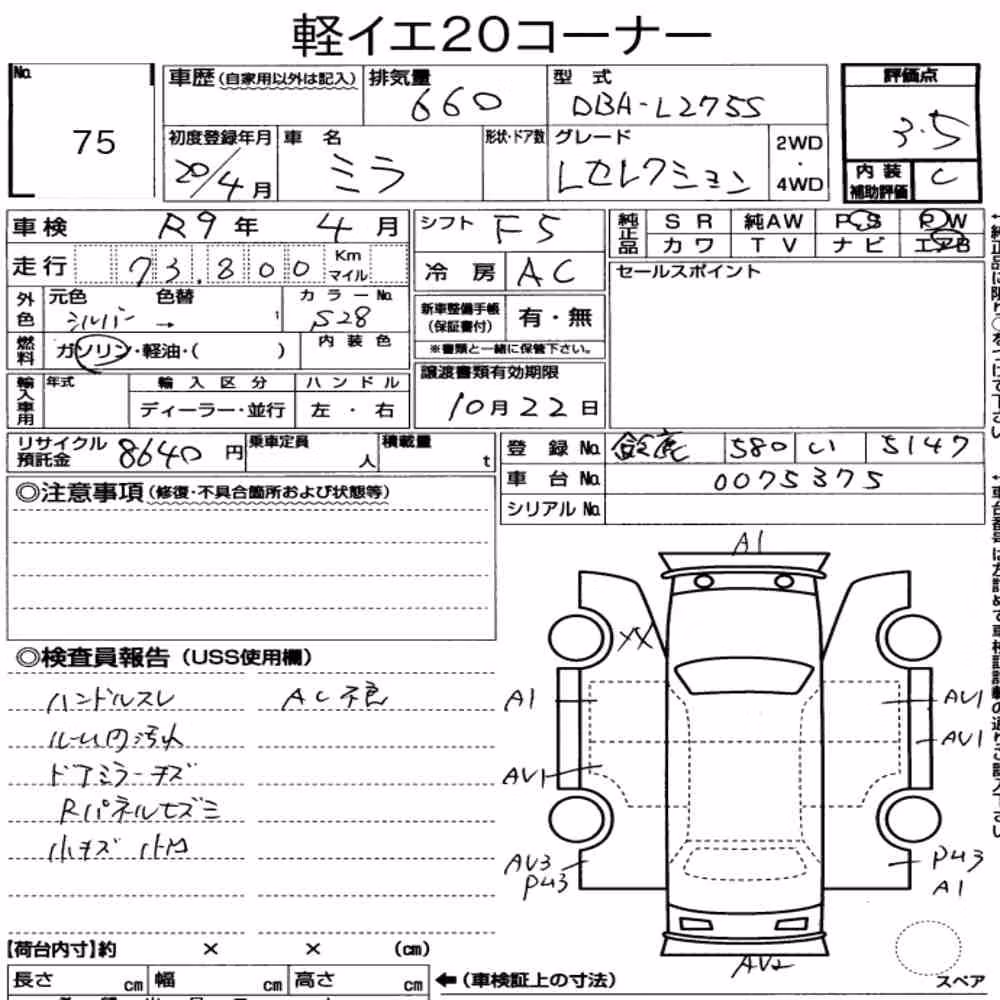 軽イエ20コーナー
No. 75
車歴 (自家用以外は記入) 排気量 660 型式 DBA-L275S 評価点 3.5
初度登録年月 20/4月 車名 ミラ 形状・ドア数 グレード Lセレクション 2WD・4WD 内装補助評価 C
車検 R9年 4月 シフト F5 純正品 SR 純AW PS PW
カワ TV ナビ エアB
走行 73.800 Km マイル 冷房 AC セールスポイント
外色 元色 シルバー 色替 → カラーNo. S28 新車整備手帳(保証書付) 有・無
※書類と一緒に保管下さい。
燃料 ガソリン・軽油・( ) 内装色
譲渡書類有効期限
10月22日
輸入車用 年式 輸入区分 ハンドル
ディーラー・並行 左・右
リサイクル預託金 8640円 乗車定員 人 積載量 t 登録No. 鈴鹿 580 い 5147
車台No. 0075375
シリアルNo.
◎注意事項 (修復・不具合箇所および状態等)
◎検査員報告 (USS使用欄)
ハンドルスレ AC不良
ルーム内汚れ
ドアミラーキズ
Rパネルヒズミ
小キズ 小凹
A1
XX
A1
AV1
AV1
AV1
AV3
PU3
PU3
A1
AV2
スペア
【荷台内寸】約 × × (cm)
長さ cm 幅 cm 高さ cm ←(車検証上の寸法)